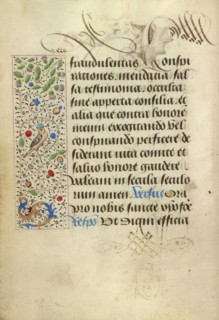 fraudulentas Conspi
rationes. mendatia. fal
sa testimonia. occulta
siue apperta consilia. et
alia que contra honorē
meum excogitando vel
conspirando perficere de
siderant vita comite et
saluo honore gaudere
valeam in secula seculo
rum amen Versus Ora
pro nobis sancte
Respō Ut digni efficia